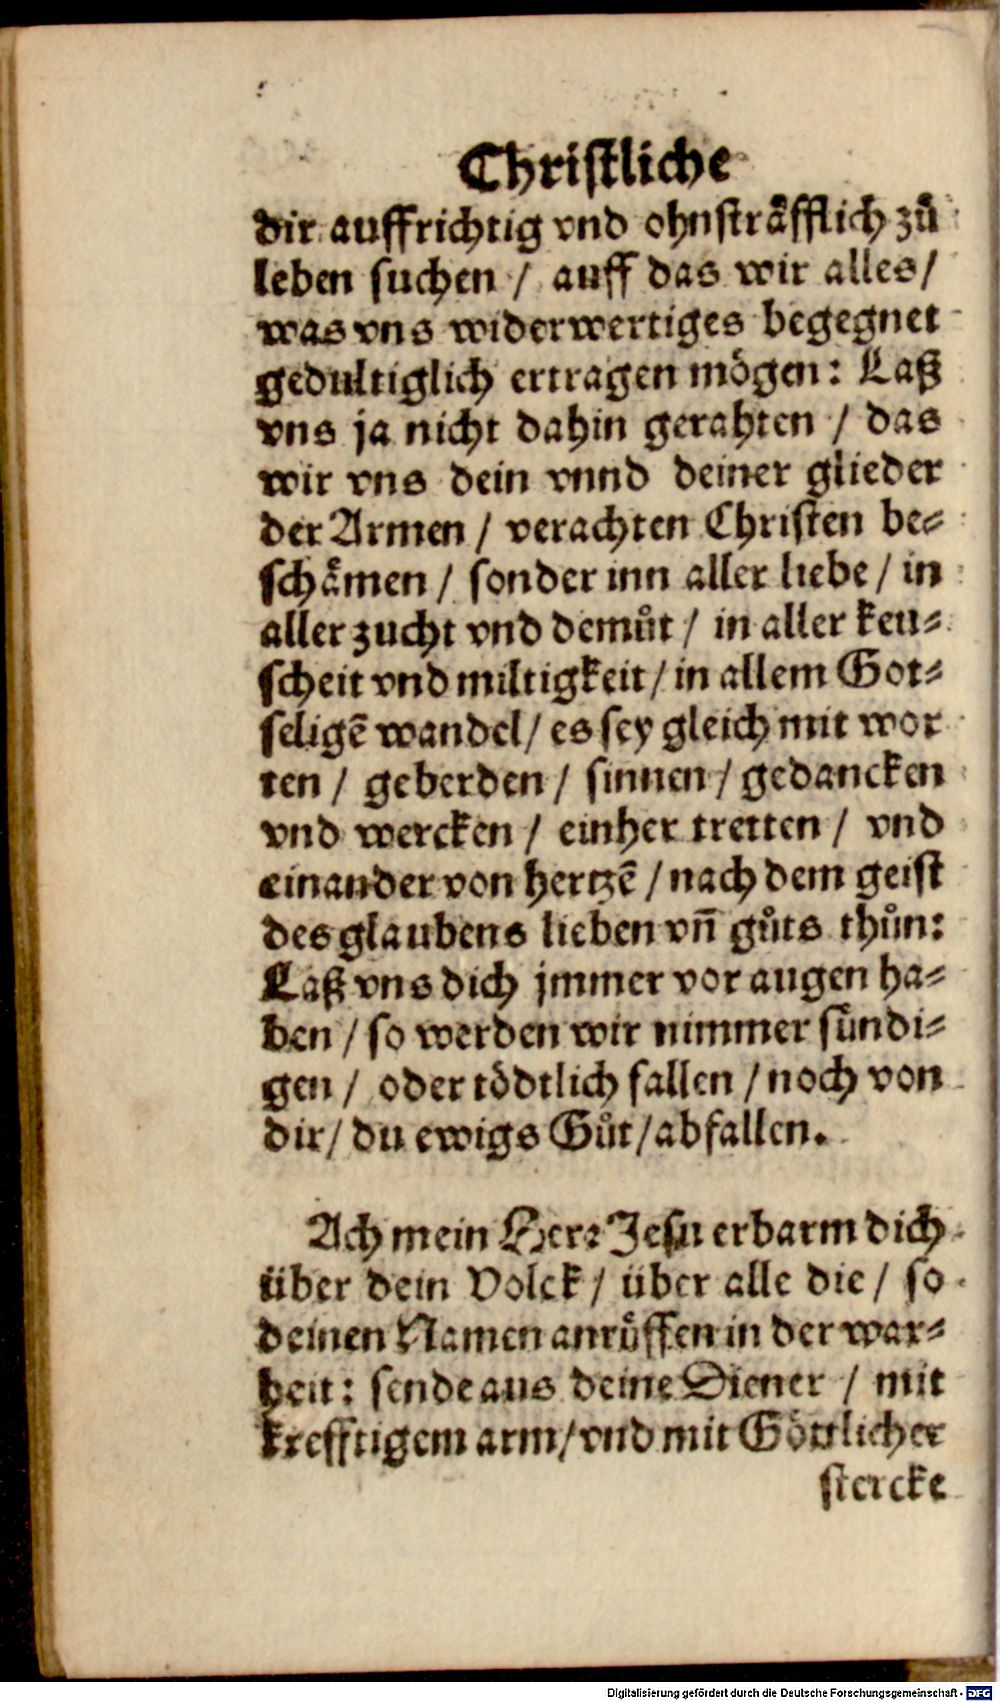 Christliche
dir auffrichtig vnd ohnstråfflich zů
leben suchen / auff das wir alles /
was vns widerwertiges begegnet
gedultiglich ertragen mögen: Laß
vns ja nicht dahin gerahten / das
wir vns dein vnnd deiner glieder
der Armen / verachten Christen be⸗
schåmen / sonder inn aller liebe / in
aller zucht vnd demůt / in aller keu⸗
scheit vnd miltigkeit / in allem Got⸗
seligē wandel / es sey gleich mit wor
ten / geberden / sinnen / gedancken
vnd wercken / einher tretten / vnd
einander von hertzē / nach dem geist
des glaubens lieben vñ gůts thůn:
Laß vns dich jmmer vor augen ha⸗
ben / so werden wir nimmer sündi⸗
gen / oder tödtlich fallen / noch von
dir / du ewigs Gůt / abfallen.
Ach mein Herr Jesu erbarm dich
über dein Volck / über alle die / so
deinen Namen anrüffen in der war⸗
heit: sende aus deine Diener / mit
krefftigem arm / vnd mit Göttlicher
stercke
Digitalisierung gefördert durch die Deutsche Forschungsgemeinschaft - DFG